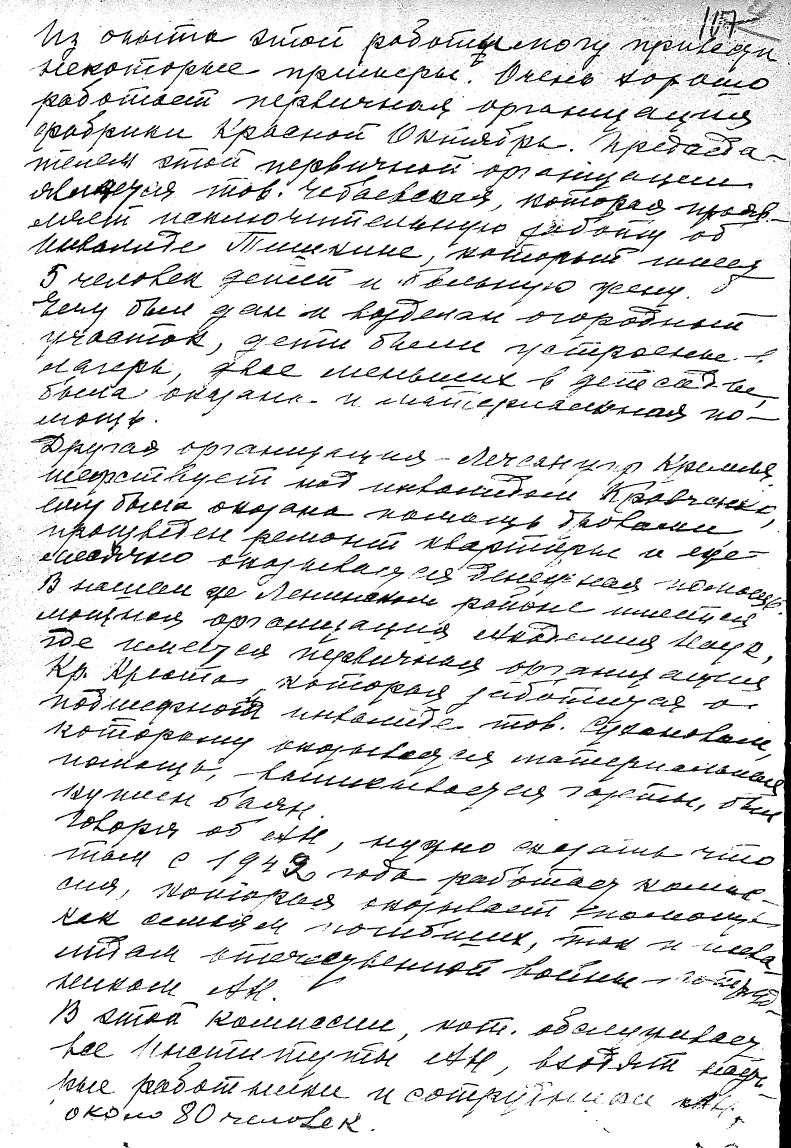 117
Из опыта этой работы могу приведи
некоторые примеры. Очень хорошо
работает первичная организация
фабрики Красной Октябрь. Председа-
телем этой первичной организации
является тов. Чебаевская, которая прояв-
ляет исключительную заботу об
инвалиде Пишкине, который имеет
5 человек детей и больную жену.
Ему был дан и возделан огородный
участок, дети были устроены в
лагерь, двое меньших в детсады,
была оказана и материальная по-
мощь.
Другая организация - Лечсанупр Кремля,
шефствует над инвалидом Кравченко,
ему была оказана помощь дровами,
произведен ремонт квартиры и еже-
месячно оказывается денежная помощь.
В нашем же Ленинском районе имеется
мощная организация Академия Наук,
где имеется первичная организация
Кр. Креста, которая заботится о
подшефном инвалиде тов. Сухановым,
которому оказывается материальная
помощь, выписывается газеты, был
куплен баян.
Говоря об АН, нужно сказать что
там с 1942 года работает комис-
сия, которая оказывает помощь
как семьям погибших, так и инва-
лидам отечественной войны сотруд-
никам АН.
В этой комиссии, кот. обслуживает
все Институты АН, входят науч-
ные работники и сотрудники АН,
около 80 человек.